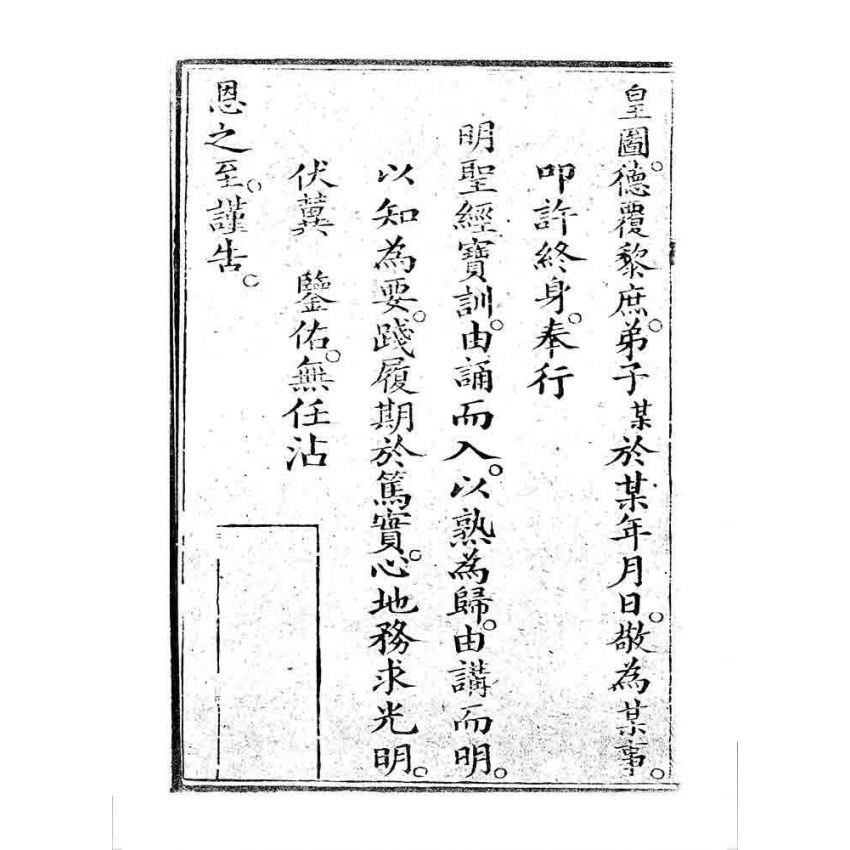 皇圖。德覆黎庶。弟子某於某年月日。敬為某事。
叩許終身。奉行
明聖經寶訓。由誦而入。以熟為歸。由講而明。
以知為要。踐履期於篤實。心地務求光明。
伏冀 鑒佑。無任沾
恩之至。謹告。